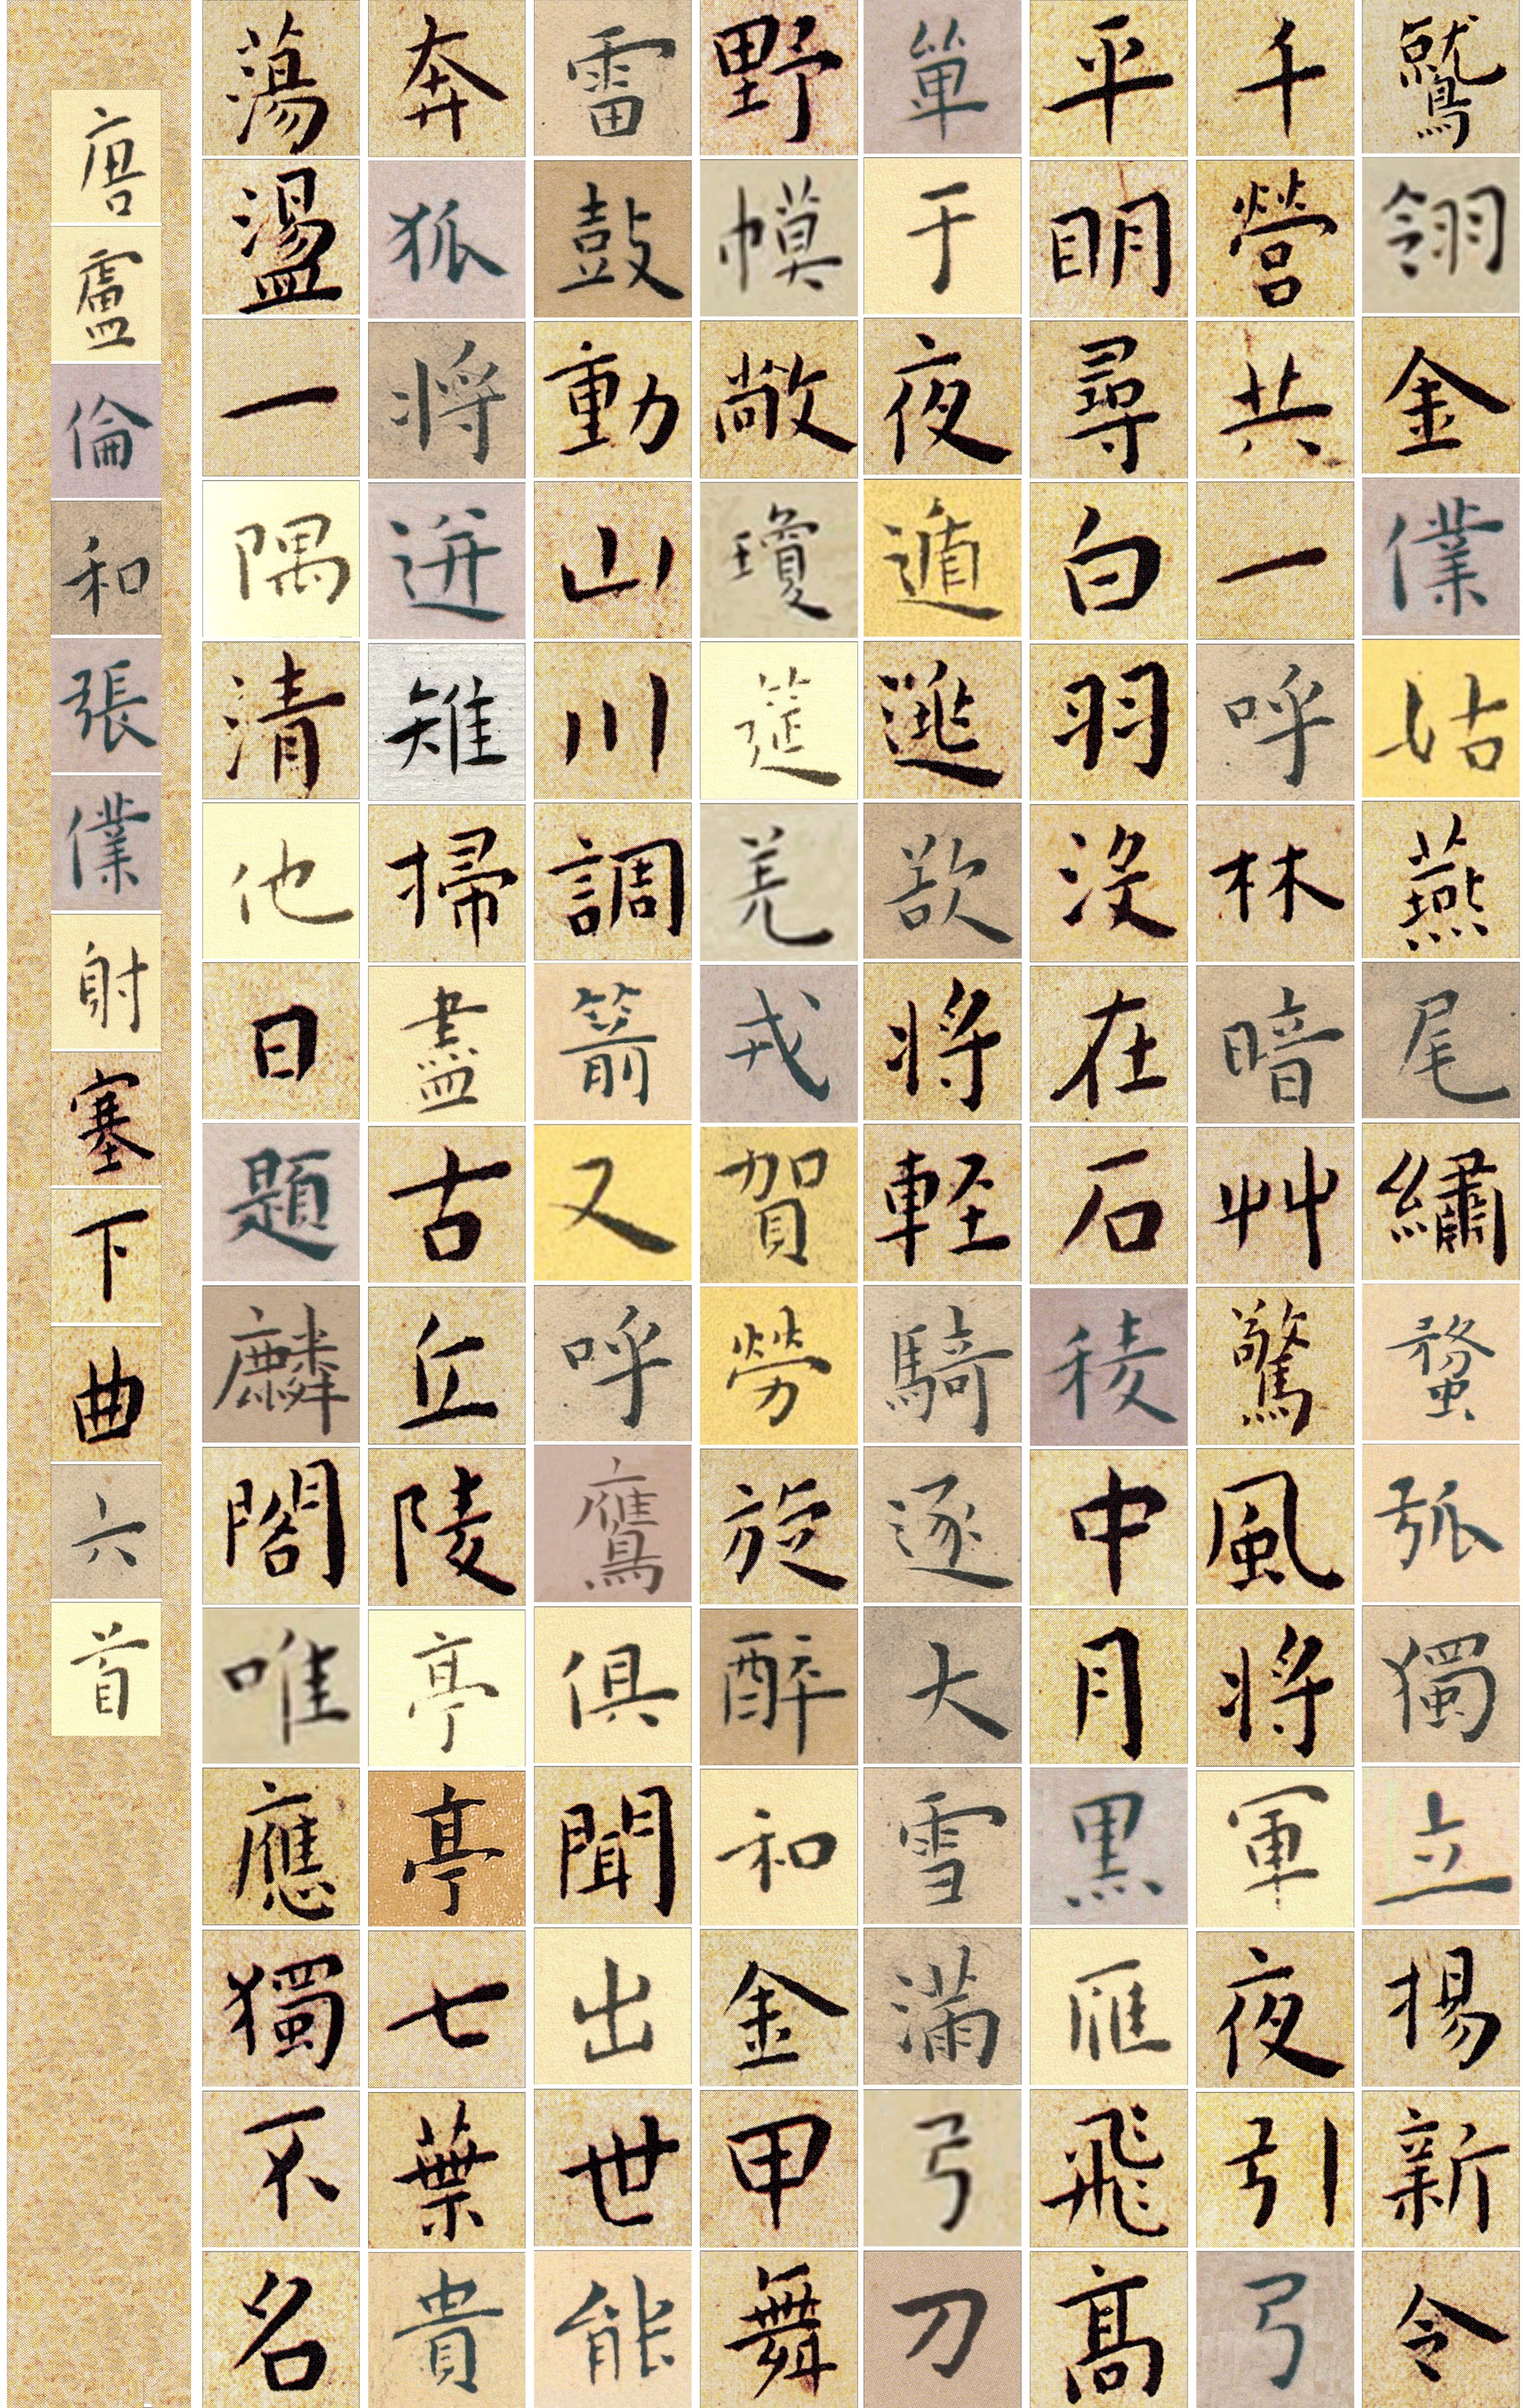 鷲翎金僕姑燕尾繡蝥弧獨立揚新令
千營共一呼林暗艸驚風將軍夜引弓
平眀尋白羽沒在石稜中月黑雁飛高
單于夜遁逃欲將軽騎逐大雪滿弓刀
野幙敞瓊筵羌戎賀勞旋醉和金甲舞
雷鼓動山川調箭又呼鷹俱聞出世能
奔狐將迸雉掃盡古丘陵亭亭七葉貴
蕩盪一隅清他日題麟閣唯應獨不名
唐盧倫和張僕射塞下曲六首